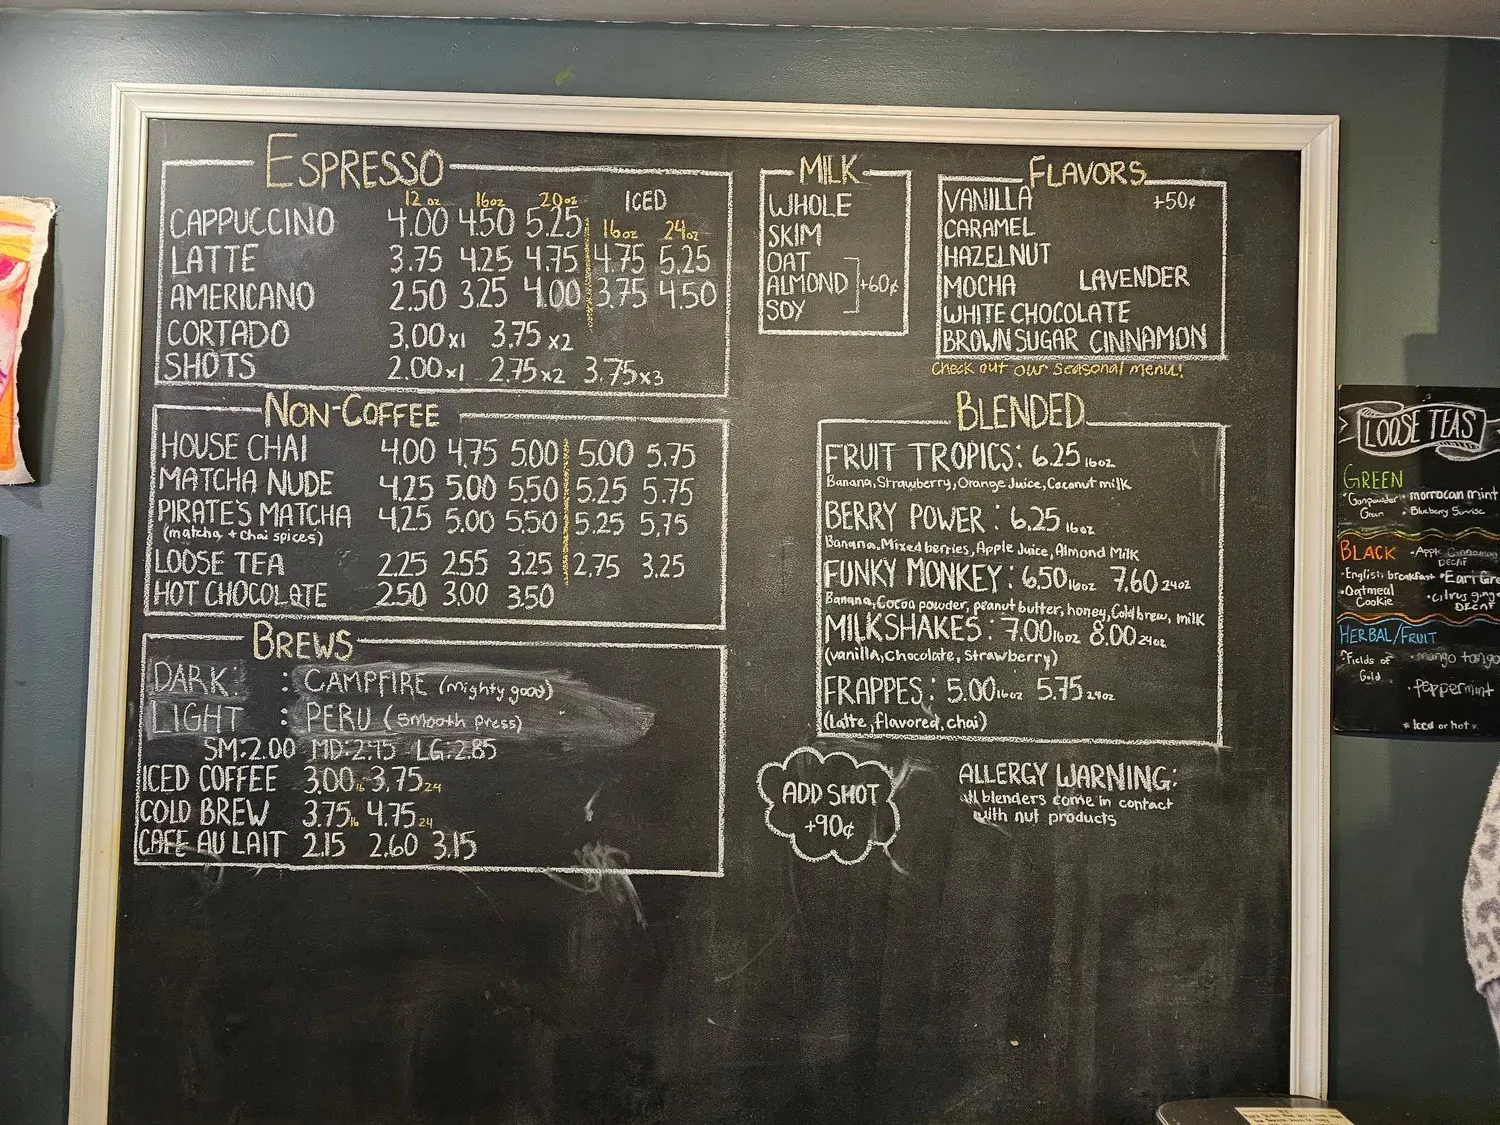 ESPRESSO
12 oz 16oz 20oz ICED
CAPPUCCINO 4.00 4.50 5.25 16oz 24oz
LATTE 3.75 4.25 4.75 4.75 5.25
AMERICANO 2.50 3.25 4.00 3.75 4.50
CORTADO 3.00x1 3.75x2
SHOTS 2.00x1 2.75x2 3.75x3
NON-COFFEE
HOUSE CHAI 4.00 4.75 5.00 5.00 5.75
MATCHA NUDE 4.25 5.00 5.50 5.25 5.75
PIRATE'S MATCHA 4.25 5.00 5.50 5.25 5.75
(matcha + chai spices)
LOOSE TEA 2.25 2.55 3.25 2.75 3.25
HOT CHOCOLATE 2.50 3.00 3.50
BREWS
DARK : CAMPFIRE (mighty good)
LIGHT : PERU (Smooth Press)
SM:2.00 MD:2.45 LG:2.85
ICED COFFEE 3.00 16 3.75 24
COLD BREW 3.75 16 4.75 24
CAFE AU LAIT 2.15 2.60 3.15
MILK
WHOLE
SKIM
OAT
ALMOND +60¢
SOY
FLAVORS
VANILLA +50¢
CARAMEL
HAZELNUT
MOCHA LAVENDER
WHITE CHOCOLATE
BROWN SUGAR CINNAMON
Check out our Seasonal menu!
BLENDED
FRUIT TROPICS: 6.25 16oz
Banana, Strawberry, Orange Juice, Coconut milk
BERRY POWER: 6.25 16oz
Banana, Mixed berries, Apple Juice, Almond Milk
FUNKY MONKEY: 6.50 16oz 7.60 24oz
Banana, Cocoa powder, peanut butter, honey, Cold brew, milk
MILKSHAKES: 7.00 16oz 8.00 24oz
(vanilla, chocolate, Strawberry)
FRAPPES: 5.00 16oz 5.75 24oz
(Latte, flavored, chai)
ADD SHOT
+90¢
ALLERGY WARNING:
All blenders come in contact
with nut products
LOOSE TEAS
GREEN
•Gunpowder Green • morrocan mint
• Blueberry Sunrise
BLACK • Apple Cinnamon DECAF
•English breakfast •Earl Gre
•Oatmeal Cookie •Citrus ging DECAF
HERBAL/FRUIT
•Fields of Gold •mango tango
•peppermint
*Iced or hot*